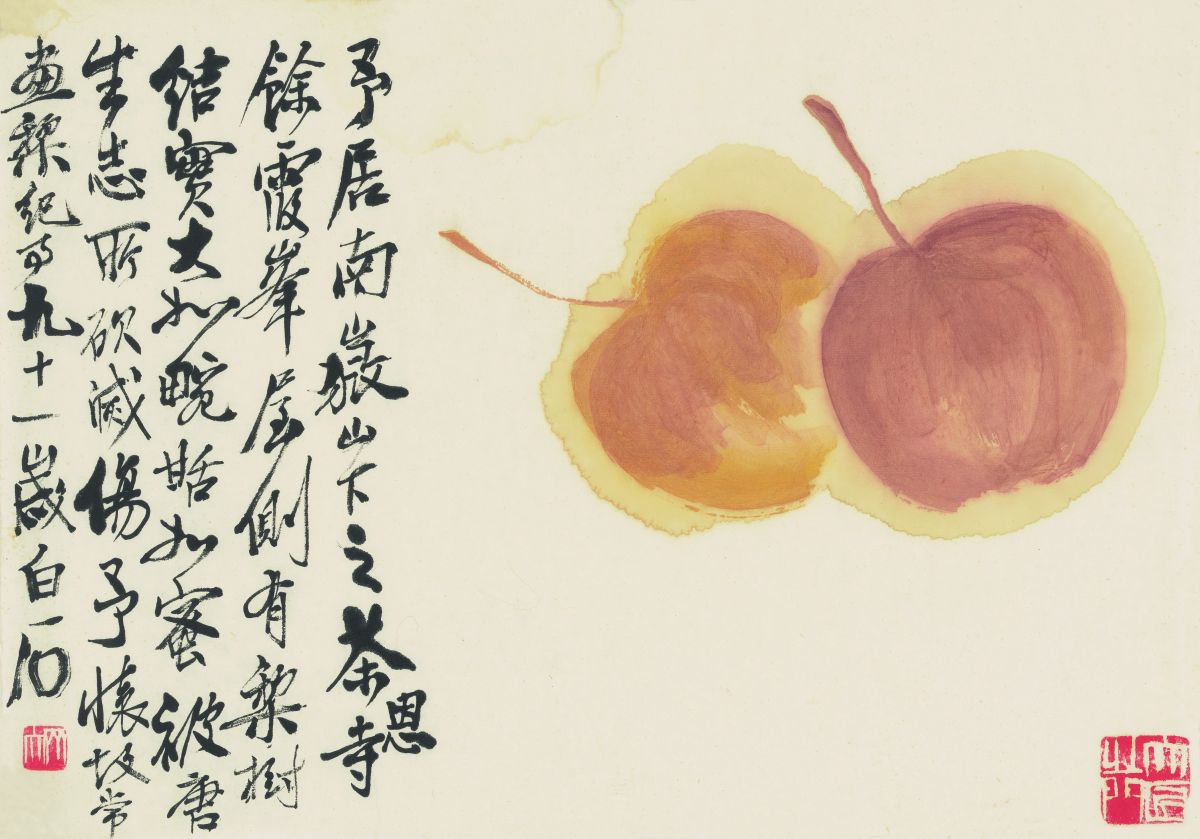 予居南嶽山下之茶恩寺
餘霞峯屋側有棃樹
結實大如畹甜如蜜被唐
生志所砍滅傷予懷故常
畫棃紀事九十一歲白石